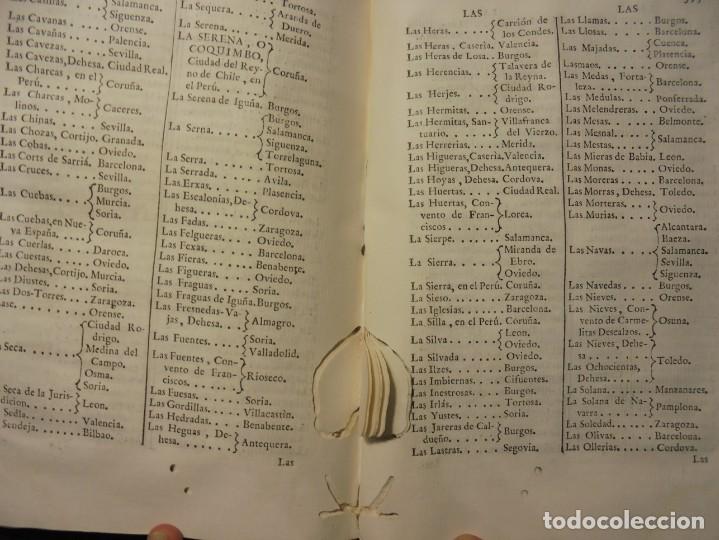 Las Cavas. . . . . . Salamanca.
Siguenza.
Las Cavanas. . . . . Orense.
Las Cavañas. . . . . Palencia.
Las Cavezas. . . . . Sevilla.
Las Cavezas, Dehesa. Ciudad Real.
Las Charcas, en el
Perú. . . . . . Coruña.
Las Charcas, Mo-
linos. . . . . . Caceres.
Las Chinas. . . . . Sevilla.
Las Chozas, Cortijo. Granada.
Las Cobas. . . . . . Oviedo.
Las Corts de Sarriá. Barcelona.
Las Cruces. . . . . Sevilla.
Las Cuebas. . . . . Burgos.
Murcia.
Soria.
Las Cuebas, en Nue-
va España. . . . . Coruña.
Las Cuerlas. . . . . Daroca.
Las Cuestas. . . . . Oviedo.
Las Dehesas, Cortijo, Murcia.
Las Diustes. . . . . Soria.
Las Dos-Torres. . . . Zaragoza.
ase. . . . . . . . Orense.
Seca. . . . . . Ciudad Ro-
drigo.
Medina del
Campo.
Osma.
Soria.
Seca de la Juris-
dicion. . . . . . Leon.
Sedla. . . . . . Valencia.
Sendeja. . . . . Bilbao.
Tortosa.
La Sequera. . . . . Aranda de
Duero.
La Serena. . . . . . Merida.
LA SERENA, O
COQUIMBO,
Ciudad del Rey-
no de Chile, en
el Perú. . . . . Coruña.
La Serena de Iguña. Burgos.
La Serna. . . . . . Burgos.
Salamanca.
Siguenza.
Torrelaguna.
La Serra. . . . . . Tortosa.
La Serrada. . . . . Avila.
Las Erxas. . . . . . Plasencia.
Las Escalonias, De-
hesa. . . . . . . Cordova.
Las Fadas. . . . . . Zaragoza.
Las Felgueras. . . . Oviedo.
Las Fexas. . . . . . Barcelona.
Las Fieras. . . . . . Benabente.
Las Figueras. . . . . Oviedo.
Las Fraguas. . . . . Soria.
Las Fraguas de Iguña. Burgos.
Las Fresnedas-Va-
jas, Dehesa. . . . . Almagro.
Las Fuentes. . . . . Soria.
Valladolid.
Las Fuentes, Con-
vento de Fran-
ciscos. . . . . . Rioseco.
Las Fuesas. . . . . . Soria.
Las Gordillas. . . . . Villacastin.
Las Hedradas. . . . . Benabente.
Las Heguas, De-
hesa. . . . . . . Antequera.
Las
LAS
Las Heras. . . . . . Carrión de
los Condes.
Las Heras, Caseria. Valencia.
Las Heras de Losa. . Burgos.
Las Herencias. . . . Talavera de
la Reyna.
Las Herjes. . . . . . Ciudad Ro-
drigo.
Las Hermitas. . . . . Orense.
Las Hermitas, San-
tuario. . . . . . Villafranca
del Vierzo.
Las Herrerias. . . . . Merida.
Las Higueras, Caseria, Valencia.
Las Higueras, Dehesa, Antequera.
Las Hoyas, Dehesa. Cordova.
Las Huertas. . . . . Ciudad Real.
Las Huertas, Con-
vento de Fran-
ciscos. . . . . . Lorca.
La Sierpe. . . . . . Salamanca.
La Sierra. . . . . . Miranda de
Ebro.
Oviedo.
La Sierra, en el Perú. Coruña.
La Sieso. . . . . . Zaragoza.
Las Iglesias. . . . . Barcelona.
La Silla, en el Perú. Coruña.
La Silva. . . . . . Leon.
Oviedo.
La Silvada. . . . . Oviedo.
Las Ilzes. . . . . . Burgos.
Las Imbiernas. . . . Cifuentes.
Las Inestrosas. . . . Burgos.
Las Irlás. . . . . . Tortosa.
Las Yustes. . . . . . Soria.
Las Jareras de Cal-
dueño. . . . . . Burgos.
Las Lastras. . . . . Segovia.
LAS
Las Llamas. . . . . . Burgos.
Las Llosas. . . . . . Barcelona.
Las Majadas. . . . . Cuenca.
Plasencia.
Lasmaos. . . . . . . Orense.
Las Medas, Forta-
leza. . . . . . . Barcelona.
Las Medulas. . . . . Ponferrada.
Las Melendreras. . . Oviedo.
Las Mesas. . . . . . Belmonte.
Las Mesnal. . . . . .
Las Mestas. . . . . . Salamanca.
Las Mieras de Babia. Leon.
Las Monas. . . . . . Oviedo.
Las Moreras. . . . . Barcelona.
Las Morras, Dehesa. Toledo.
Las Morteras. . . . .
Las Murias. . . . . . Oviedo.
Las Navas. . . . . . Alcantara.
Baeza.
Salamanca.
Sevilla.
Siguenza.
Las Navedas. . . . . Burgos.
Las Nieves. . . . . . Orense.
Las Nieves, Con-
vento de Carme-
litas Descalzos. . . . Osuna.
Las Nieves, Dehe-
sa. . . . . . . .
Las Ochocientas,
Dehesa. . . . . . Toledo.
La Solana. . . . . . Manzanares.
La Solana de Na-
varra. . . . . . . Pamplona.
La Soledad. . . . . . Zaragoza.
Las Olivas. . . . . . Barcelona.
Las Ollerias. . . . . Cordova.
Las
todocoleccion
todocoleccion.net